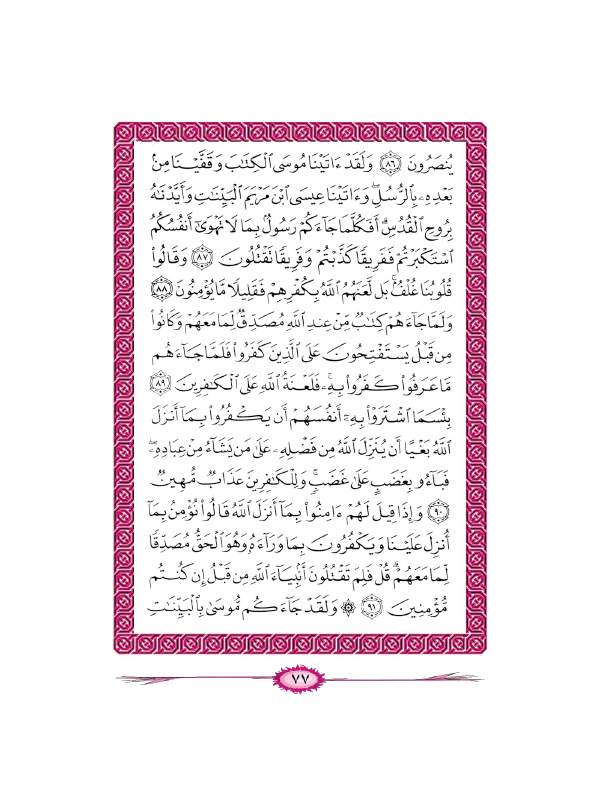 يُنصَرُونَ ٨٦ وَلَقَدْ ءَاتَيْنَا مُوسَى ٱلْكِتَٰبَ وَقَفَّيْنَا مِنۢ
بَعْدِهِۦ بِٱلرُّسُلِۖ وَءَاتَيْنَا عِيسَى ٱبْنَ مَرْيَمَ ٱلْبَيِّنَٰتِ وَأَيَّدْنَٰهُ
بِرُوحِ ٱلْقُدُسِۗ أَفَكُلَّمَا جَآءَكُمْ رَسُولُۢ بِمَا لَا تَهْوَىٰٓ أَنفُسُكُمُ
ٱسْتَكْبَرْتُمْ فَفَرِيقًا كَذَّبْتُمْ وَفَرِيقًا تَقْتُلُونَ ٨٧ وَقَالُوا۟
قُلُوبُنَا غُلْفُۢۚ بَل لَّعَنَهُمُ ٱللَّهُ بِكُفْرِهِمْ فَقَلِيلًا مَّا يُؤْمِنُونَ ٨٨
وَلَمَّا جَآءَهُمْ كِتَٰبٌ مِّنْ عِندِ ٱللَّهِ مُصَدِّقٌ لِّمَا مَعَهُمْ وَكَانُوا۟
مِن قَبْلُ يَسْتَفْتِحُونَ عَلَى ٱلَّذِينَ كَفَرُوا۟ فَلَمَّا جَآءَهُم
مَّا عَرَفُوا۟ كَفَرُوا۟ بِهِۦۚ فَلَعْنَةُ ٱللَّهِ عَلَى ٱلْكَٰفِرِينَ ٨٩
بِئْسَمَا ٱشْتَرَوْا۟ بِهِۦٓ أَنفُسَهُمْ أَن يَكْفُرُوا۟ بِمَآ أَنزَلَ
ٱللَّهُ بَغْيًا أَن يُنَزِّلَ ٱللَّهُ مِن فَضْلِهِۦ عَلَىٰ مَن يَشَآءُ مِنْ عِبَادِهِۦۖ
فَبَآءُو بِغَضَبٍ عَلَىٰ غَضَبٍۚ وَلِلْكَٰفِرِينَ عَذَابٌ مُّهِينٌ
٩٠ وَإِذَا قِيلَ لَهُمْ ءَامِنُوا۟ بِمَآ أَنزَلَ ٱللَّهُ قَالُوا۟ نُؤْمِنُ بِمَآ
أُنزِلَ عَلَيْنَا وَيَكْفُرُونَ بِمَا وَرَآءَهُۥ وَهُوَ ٱلْحَقُّ مُصَدِّقًا
لِّمَا مَعَهُمْۗ قُلْ فَلِمَ تَقْتُلُونَ أَنۢبِيَآءَ ٱللَّهِ مِن قَبْلُ إِن كُنتُم
مُّؤْمِنِينَ ٩١ ۞ وَلَقَدْ جَآءَكُم مُّوسَىٰ بِٱلْبَيِّنَٰتِ
٧٧